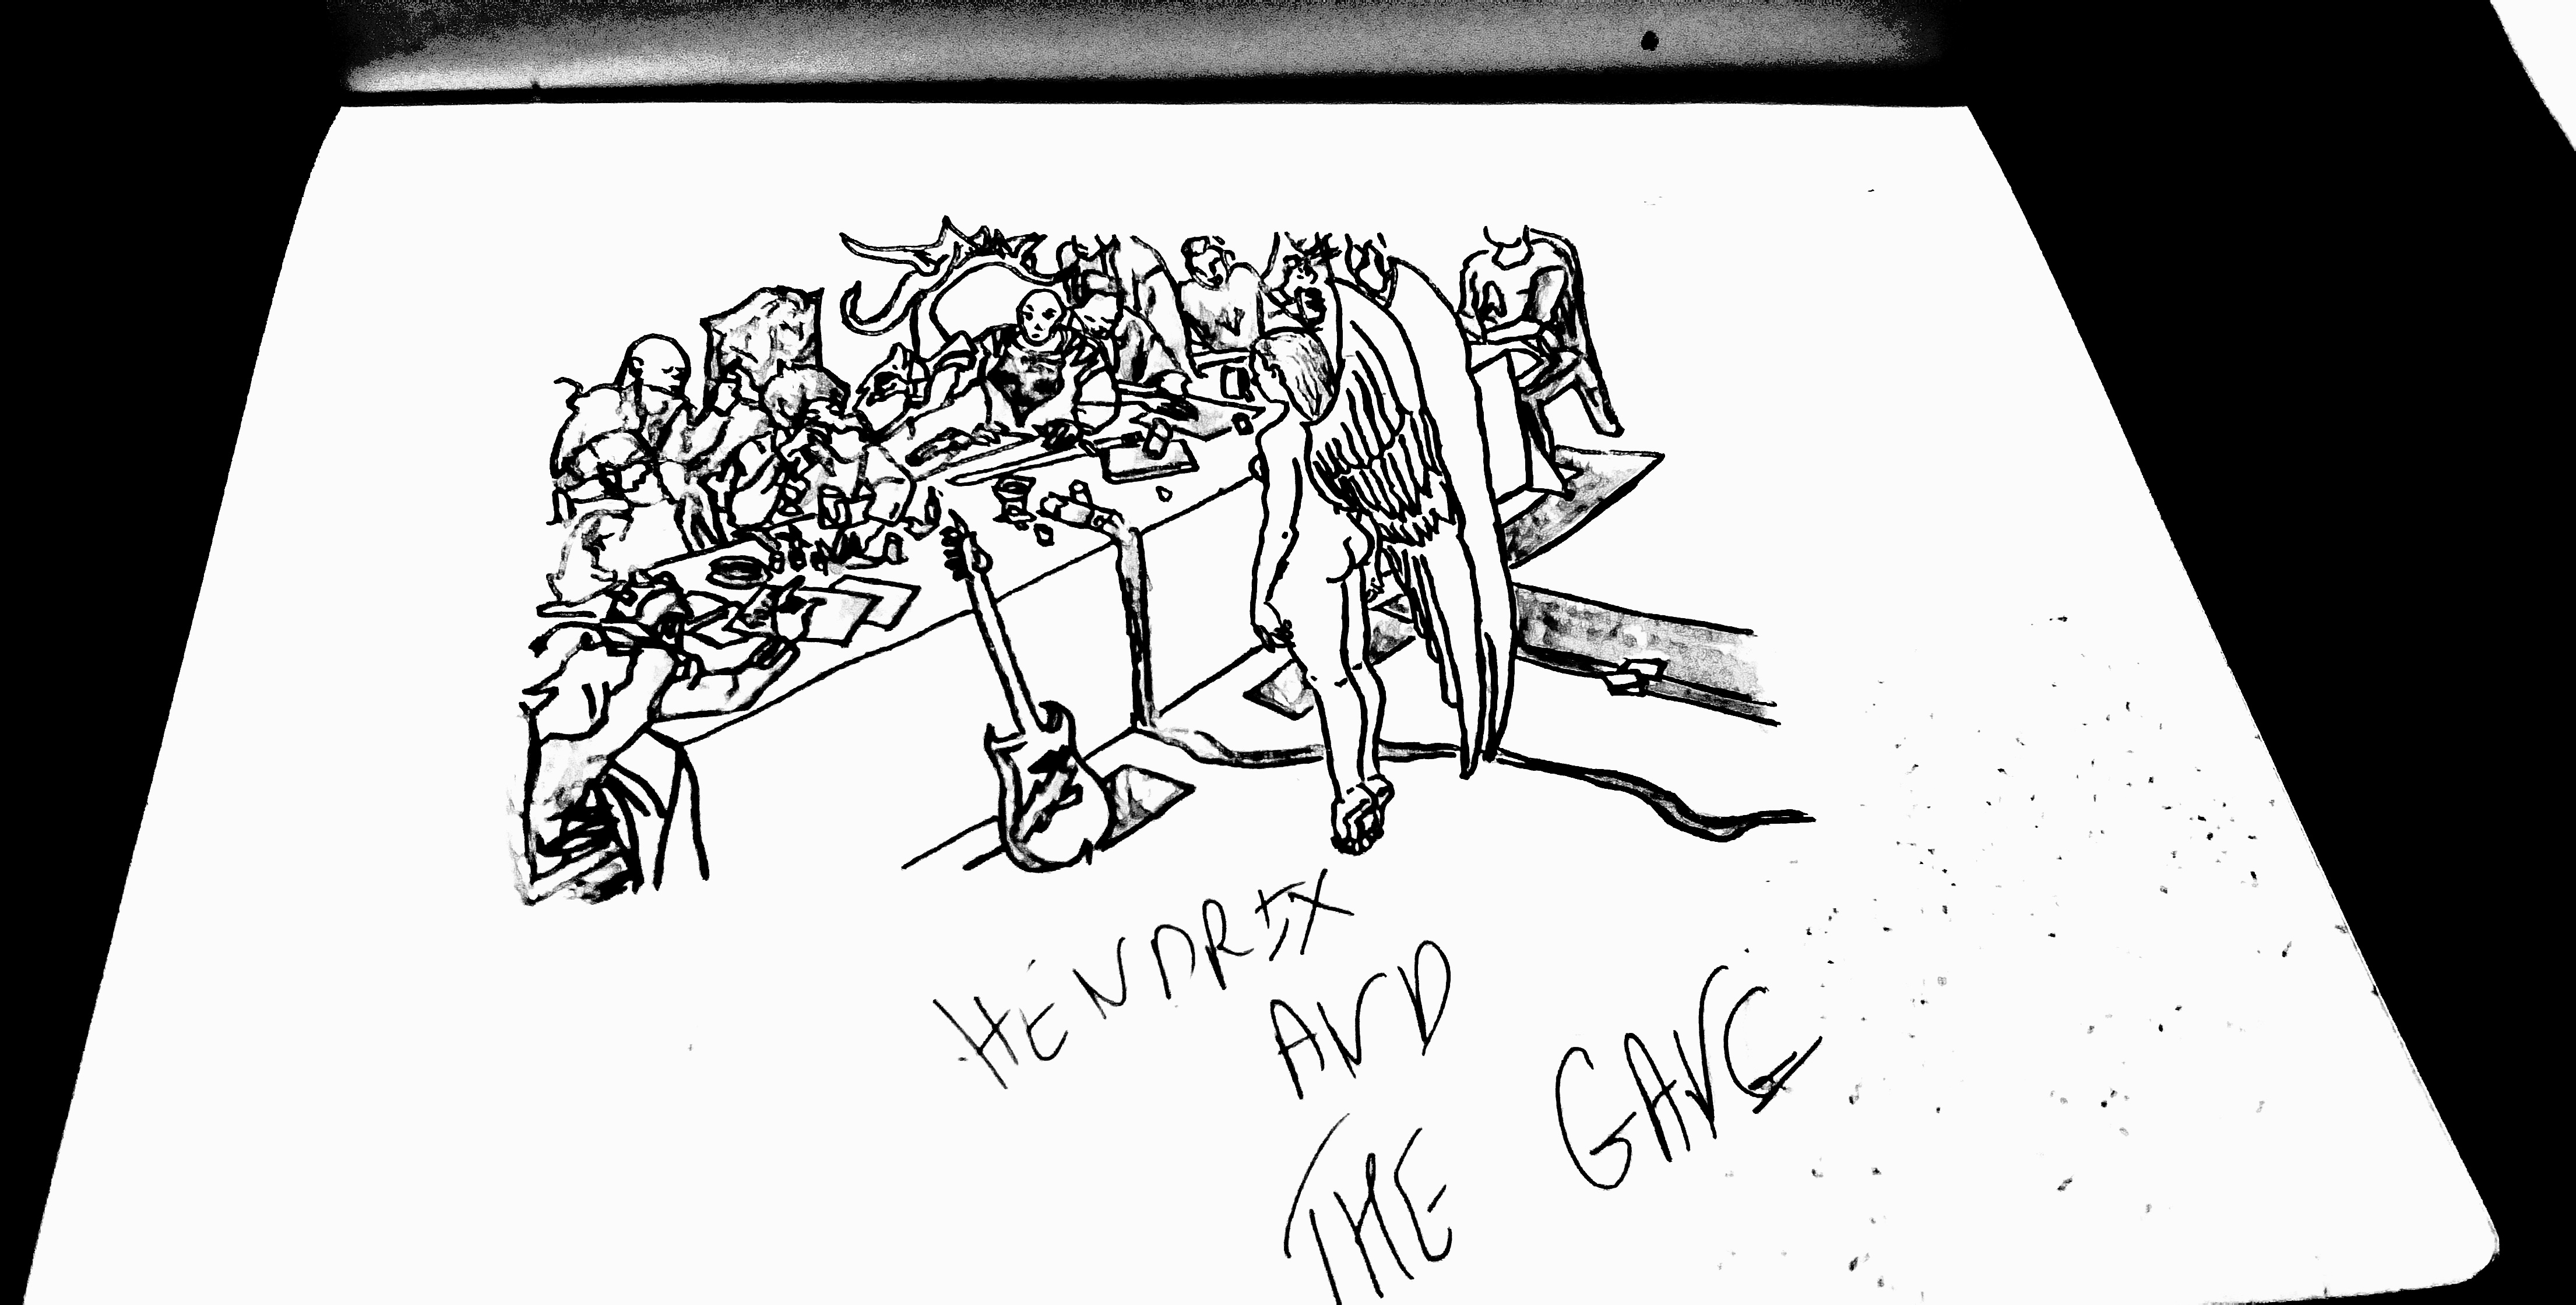 HENDRIX
AND
THE GAVE